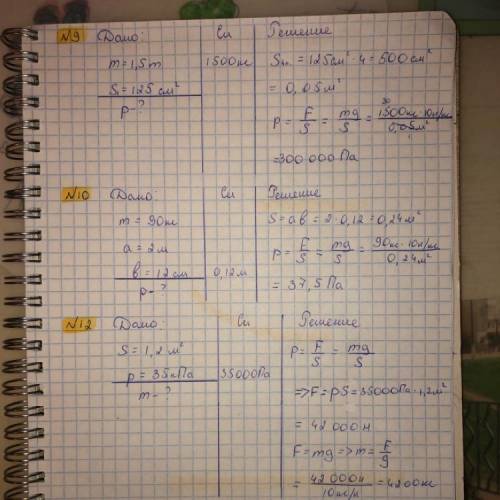 №9 Дано: Си Решение
m=1,5т 1500кг Sк = 125см²·4=500см²
S₁=125см² = 0,05м²
p-? p = F/S = mg/S = 1500кг·10н/кг/0,05м²
=300000Па
№10 Дано: Си Решение
m=90кг S=ab=2·0,12=0,24м²
a=2м p=F/S=mg/S=90кг·10н/кг/0,24м²
b=12см 0,12м
p-? = 37,5Па
№12 Дано: Си Решение
S=1,2м² p=F/S=mg/S
p=35кПа 35000Па
m-? =>F=pS=35000Па·1,2м²
= 42000н
F=mg=>m=F/g
= 42000н/10н/кг=4200кг